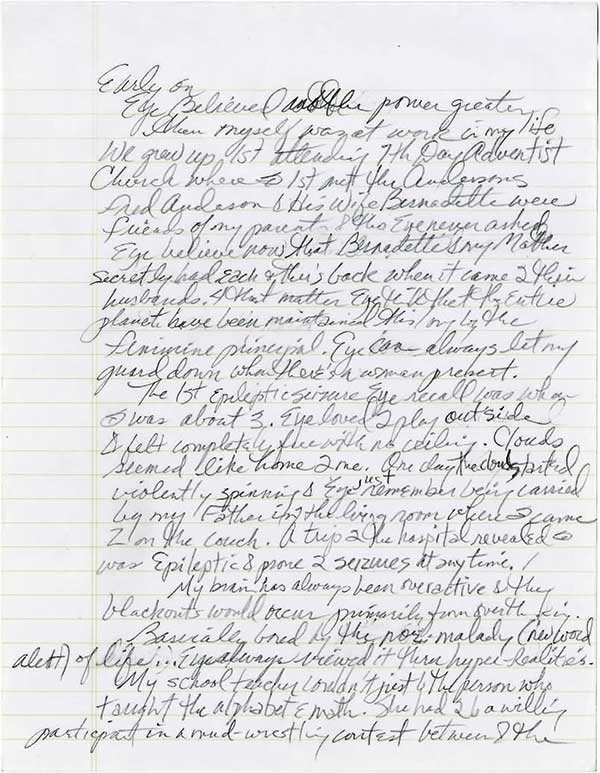 Early on
Eye Believed the power greater
than myself was at work in my life
We grew up 1st attending 7th Day Adventist
Church where 👁 1st met the Andersons
Fred Anderson & His Wife Bernadette were
friends of my parents & this Eye never asked
Eye believe now that Bernadette & my Mother
secretly had Each other's back when it came 2 their
husbands. 4 that matter Eye that the Entire
planet have been maintained this by the
feminine principal. Eye can always let my
guard down when there's a woman present.
The 1st epileptic seizure Eye recall was when
👁 was about 3. Eye loved 2 play outside
& felt completely free with no ceiling. Clouds
seemed like home 2 me. One day the clouds started
violently spinning & Eye just remember being carried
by my Father in2 the living room where 👁 came
2 on the couch. A trip 2 the hospital revealed 👁
was Epileptic & prone 2 seizures at any time.
My brain has always been overactive & the
blackouts would occur primarily from overthinking.
Basically bored by the nor-malady (new word
alert) of life... Eye always viewed it thru hyper-realities.
My school teacher couldn't just b the person who
taught the alphabet & math. She had 2 b a willing
participant in a mud-wrestling contest between & the